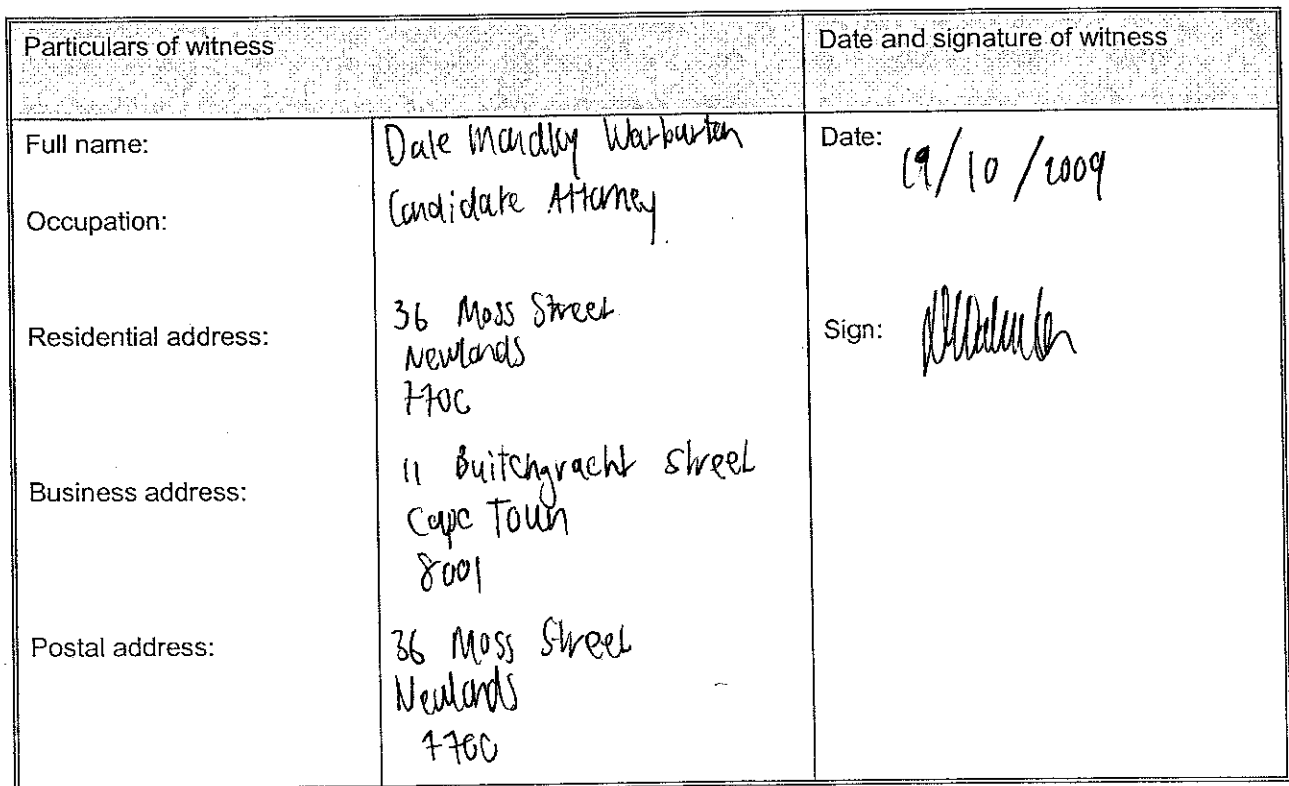 Particulars of witness
Date and signature of witness
Full name: Dale Warburton
Occupation: Candidate Attorney
Residential address: 36 Moss Street
Newlands
7700
Business address: 11 Buitengracht Street
Cape Town
8001
Postal address: 36 Moss Street
Newlands
7700
Date: 19/10/2009
Sign: